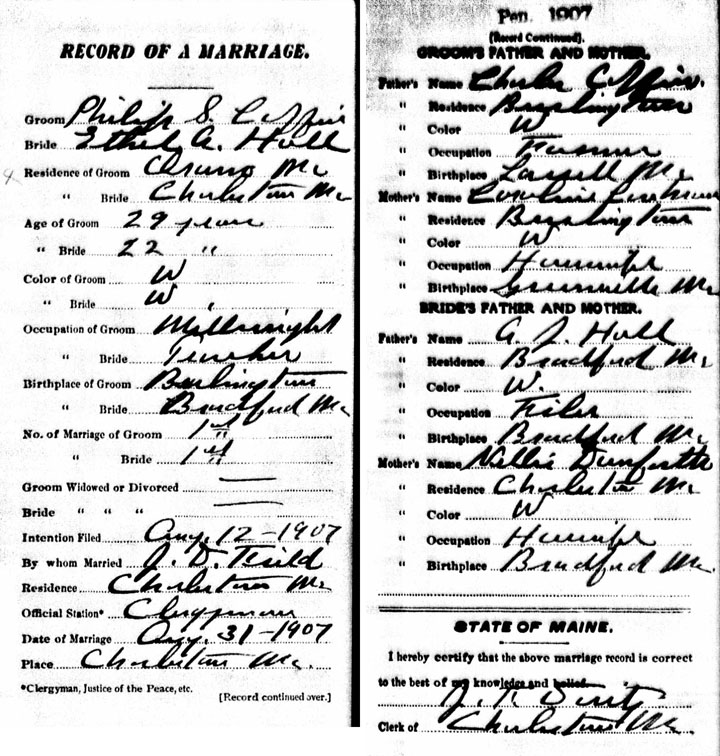 RECORD OF A MARRIAGE.
Groom Philip S. Coffin
Bride Ethel A. Hall
Residence of Groom Orono Me
" Bride Charleston Me
Age of Groom 29 years
" Bride 22 "
Color of Groom W
" Bride W
Occupation of Groom Millwright
" Bride Teacher
Birthplace of Groom Burlington
" Bride Bradford Me
No. of Marriage of Groom 1st
" Bride 1st
Groom Widowed or Divorced
Bride " " "
Intention Filed Aug. 12-1907
By whom Married J. D.
Residence Charleston Me
Official Station* Clergyman
Date of Marriage Aug. 31-1907
Place Charleston Me.
*Clergyman, Justice of the Peace, etc.
[Record continued over.]
Pen. 1907
[Record Continued].
GROOM'S FATHER AND MOTHER.
Father's Name Charles Coffin.
" Residence Burlington
" Color W
" Occupation Farmer
" Birthplace Lowell Me
Mother's Name
" Residence Burlington
" Color W
" Occupation Housewife
" Birthplace Me
BRIDE'S FATHER AND MOTHER.
Father's Name A. J. Hall
" Residence Bradford Me
" Color W.
" Occupation
" Birthplace Bradford Me
Mother's Name Nellie Danforth
" Residence Charleston Me
" Color W
" Occupation Housewife
" Birthplace Bradford Me
STATE OF MAINE.
I hereby certify that the above marriage record is correct
to the best of my knowledge and belief.
Clerk of Charleston Me.